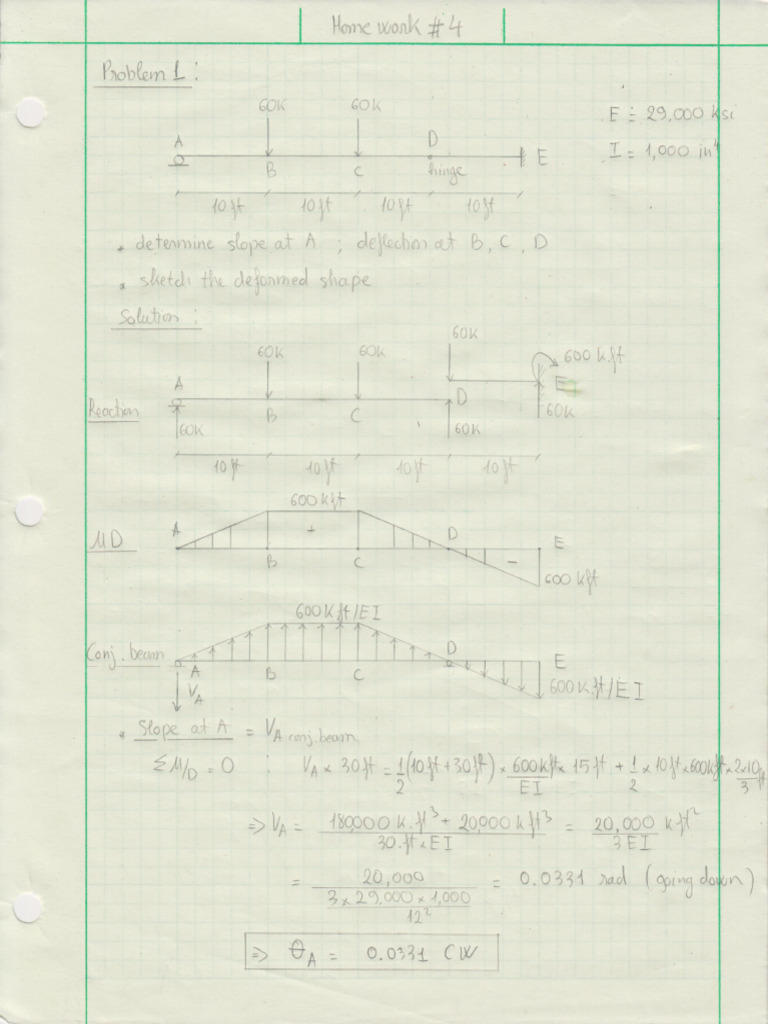 Home work # 4
Problem 1 :
60K 60K E = 29,000 ksi
A D I = 1,000 in⁴
B C hinge E
10 ft 10 ft 10 ft 10 ft
• determine slope at A ; deflection at B, C, D
• sketch the deformed shape
Solution :
60K
60K 60K 600 k.ft
A E
Reaction B C D 60K
60K 60K
10 ft 10 ft 10 ft 10 ft
600 k ft
A + D E
MD B C − 600 k ft
600 k ft/EI
D
Conj. beam A B C E
V_A 600 k.ft/EI
• Slope at A = V_A conj. beam
ΣM/D = 0 : V_A × 30 ft = 1/2 (10 ft + 30 ft) × 600 k ft/EI × 15 ft + 1/2 × 10 ft × 600 k ft × 2×10/3 ft
=> V_A = (180000 k.ft³ + 20,000 k ft³)/(30.ft × EI) = 20,000/3 EI k ft²
= 20,000/(3 × 29,000 × 1,000/12²) = 0.0331 rad (going down)
=> θ_A = 0.0331 CW